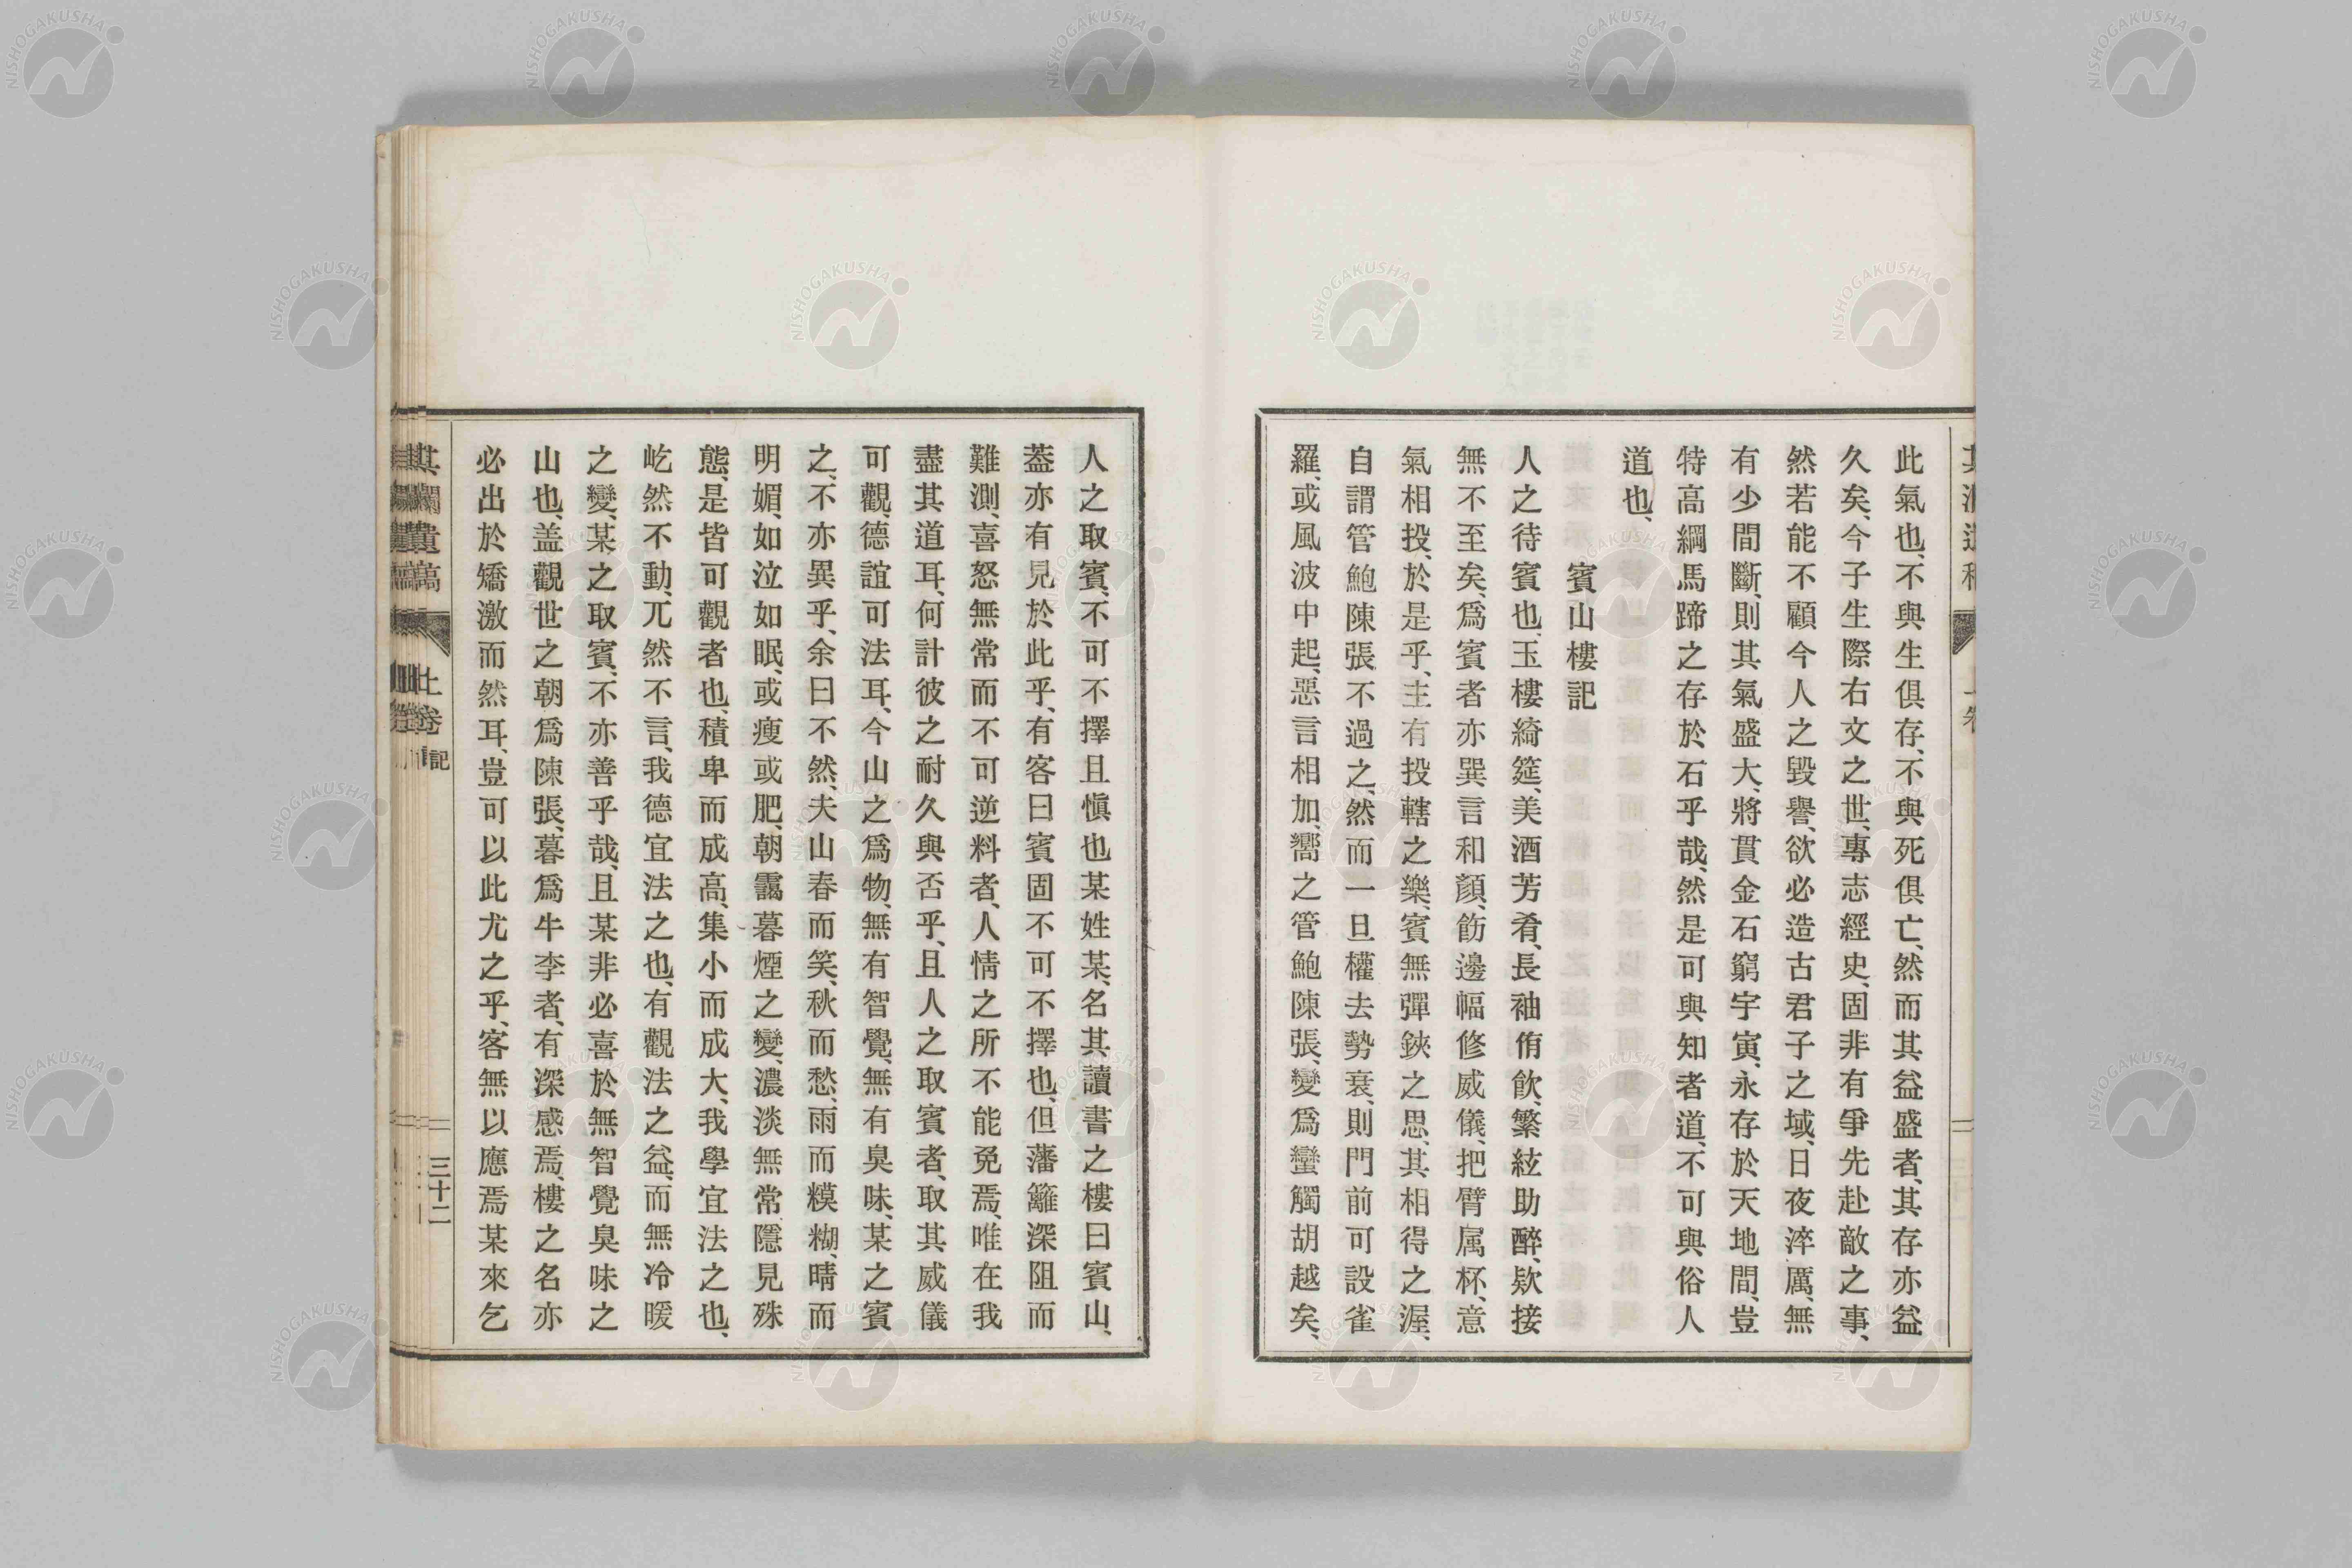 此氣也、不與生俱存、不與死俱亡、然而其益盛者、其存亦益
久矣、今子生際右文之世、專志經史、固非有爭先赴敵之事、
然若能不顧今人之毀譽、欲必造古君子之域、日夜淬厲、無
有少間斷、則其氣盛大、將貫金石窮宇寅、永存於天地間、豈
特高綱馬蹄之存於石乎哉、然是可與知者道、不可與俗人
道也、
賓山樓記
人之待賓也、玉樓綺筵、美酒芳肴、長袖侑飮、繁絃助醉、欵接
無不至矣、爲賓者亦巽言和顏、飭邊幅修威儀、把臂属杯、意
氣相投、於是乎、主有投轄之樂、賓無彈鋏之思、其相得之渥、
自謂管鮑陳張不過之、然而一旦權去勢衰、則門前可設雀
羅、或風波中起、惡言相加、嚮之管鮑陳張、變爲蠻觸胡越矣、
人之取賓、不可不擇且愼也某姓某、名其讀書之樓曰賓山、
蓋亦有見於此乎、有客曰賓固不可不擇也、但藩籬深阻而
難測、喜怒無常而不可逆料者、人情之所不能免焉、唯在我
盡其道耳、何計彼之耐久與否乎、且人之取賓者、取其威儀
可觀、德誼可法耳、今山之爲物、無有智覺、無有臭味、某之賓
之、不亦異乎、余曰不然、夫山春而笑、秋而愁、雨而糢糊、晴而
明媚、如泣如眠、或瘦或肥、朝靄暮煙之變、濃淡無常、隱見殊
態、是皆可觀者也、積卑而成高、集小而成大、我學宜法之也、
屹然不動、兀然不言、我德宜法之也、有觀法之益、而無冷暖
之變、某之取賓、不亦善乎哉、且某非必喜於無智覺臭味之
山也、盖觀世之朝爲陳張、暮爲牛李者、有深感焉、樓之名亦
必出於矯激而然耳、豈可以此尤之乎、客無以應焉某來乞
上卷 記
三十二
NISHOGAKUSHA